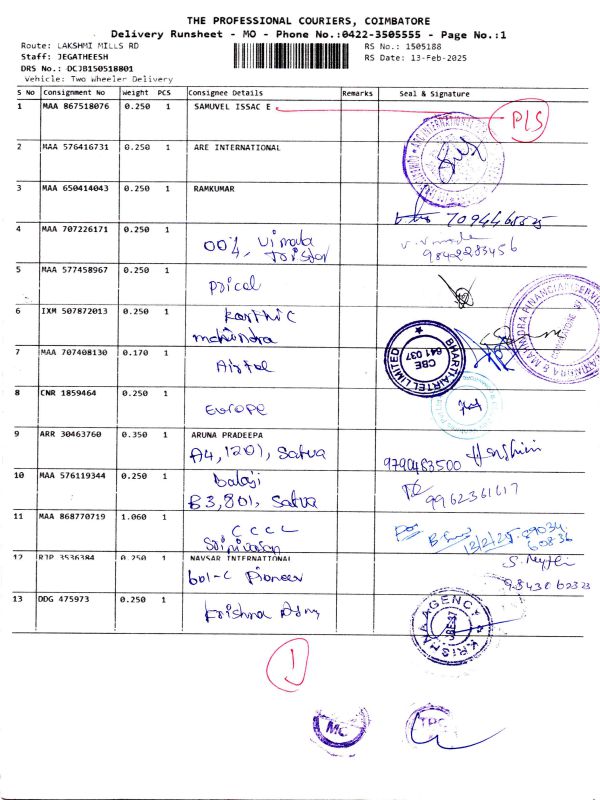 THE PROFESSIONAL COURIERS, COIMBATORE
Delivery Runsheet - MO - Phone No.:0422-3505555 - Page No.:1
Route: LAKSHMI MILLS RD
RS No.: 1505188
Staff: JEGATHEESH
RS Date: 13-Feb-2025
DRS No.: DCJB150518801
Vehicle: Two Wheeler Delivery
S No Consignment No Weight PCS Consignee Details Remarks Seal & Signature
1 MAA 867518076 0.250 1 SAMUVEL ISSAC E P/S
2 MAA 576416731 0.250 1 ARE INTERNATIONAL
3 MAA 650414043 0.250 1 RAMKUMAR
4 MAA 707226171 0.250 1
007, Vimala
9842283456
5 MAA 577458967 0.250 1
Pricol
6 IXM 507872013 0.250 1 Karthic
mahindra
7 MAA 707408130 0.170 1
Airtel
BHARTI AIRTEL LIMITED
CBE
641 037
8 CNR 1859464 0.250 1
Europe
9 ARR 30463760 0.350 1 ARUNA PRADEEPA
A4, 1201, Satva
9790483500
10 MAA 576119344 0.250 1 Balaji
B3, 801, Satva
9962361617
11 MAA 868770719 1.060 1 CCCL
Srinivasan
12 RJP 3536384 0.250 1 NAVSAR INTERNATIONAL
601-C Pioneer
13 DDG 475973 0.250 1
Krishna
KRISHNA AGENCY
1
MC